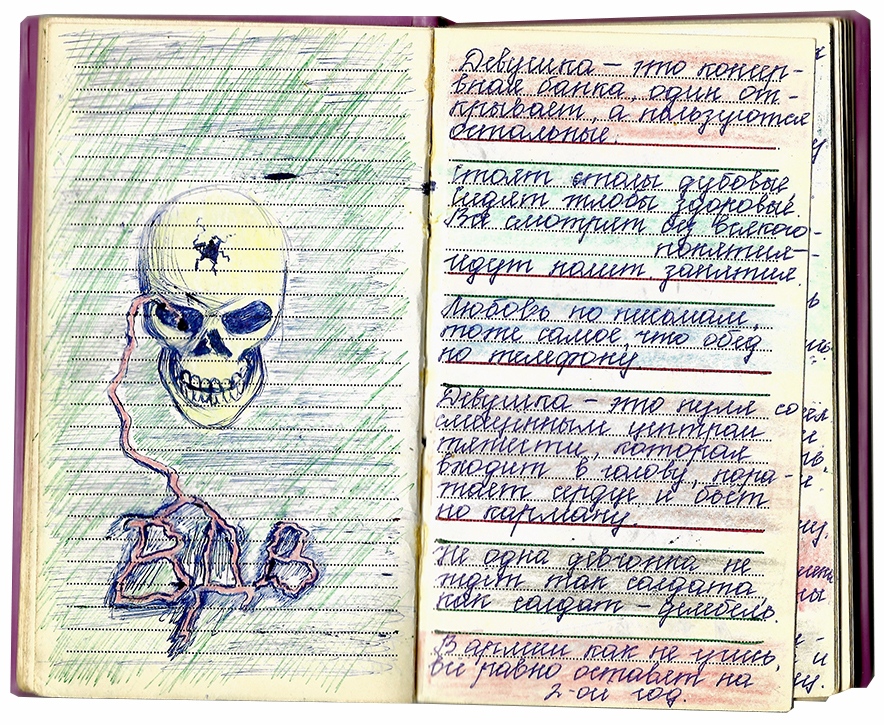 ВДВ
Девушка – это консер-
вная банка, один от-
крывает, а пользуются
остальные.
Стоят столы дубовые
Сидят жлобы здоровые.
Все смотрят без всякого
понятия –
Идут полит. занятия.
Любовь по письмам,
тоже самое, что обед
по телефону.
Девушка – это пуля со
смещенным центром
тяжести, которая
входит в голову, пора-
жает сердце и бьёт
по карману.
Не одна девчонка не
ждёт так солдата
как солдат – дембель.
В армии как не учись,
всё равно оставят на
2-ой год.